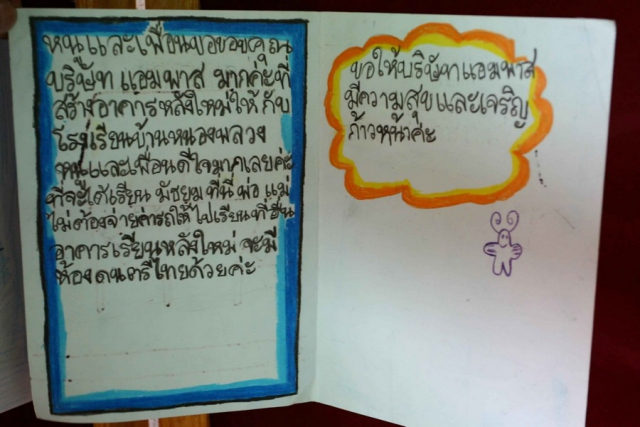 หนูและเพื่อนขอขอบคุณ
บริษัท แอมพาส มากค่ะที่
สร้างอาคารหลังใหม่ให้กับ
โรงเรียนบ้านหนองพลวง
หนูและเพื่อนดีใจมากเลยค่ะ
ที่จะได้เรียน มัธยม ที่นี่ พ่อ แม่
ไม่ต้องจ่ายค่ารถให้ไปเรียนที่อื่น
อาคารเรียนหลังใหม่ จะมี
ห้องดนตรีไทยด้วยค่ะ
ขอให้บริษัทแอมพาส
มีความสุขและเจริญ
ก้าวหน้าค่ะ